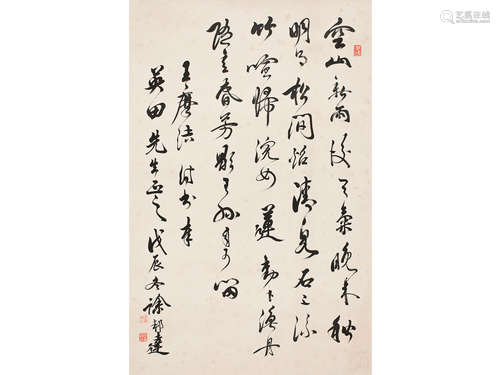 空山新雨後天氣晚來秋
明月松間照清泉石上流
竹喧歸浣女蓮動下漁舟
隨意春芳歇王孫自可留
王摩詰詩書奉
英田先生正之戊辰冬徐邦達